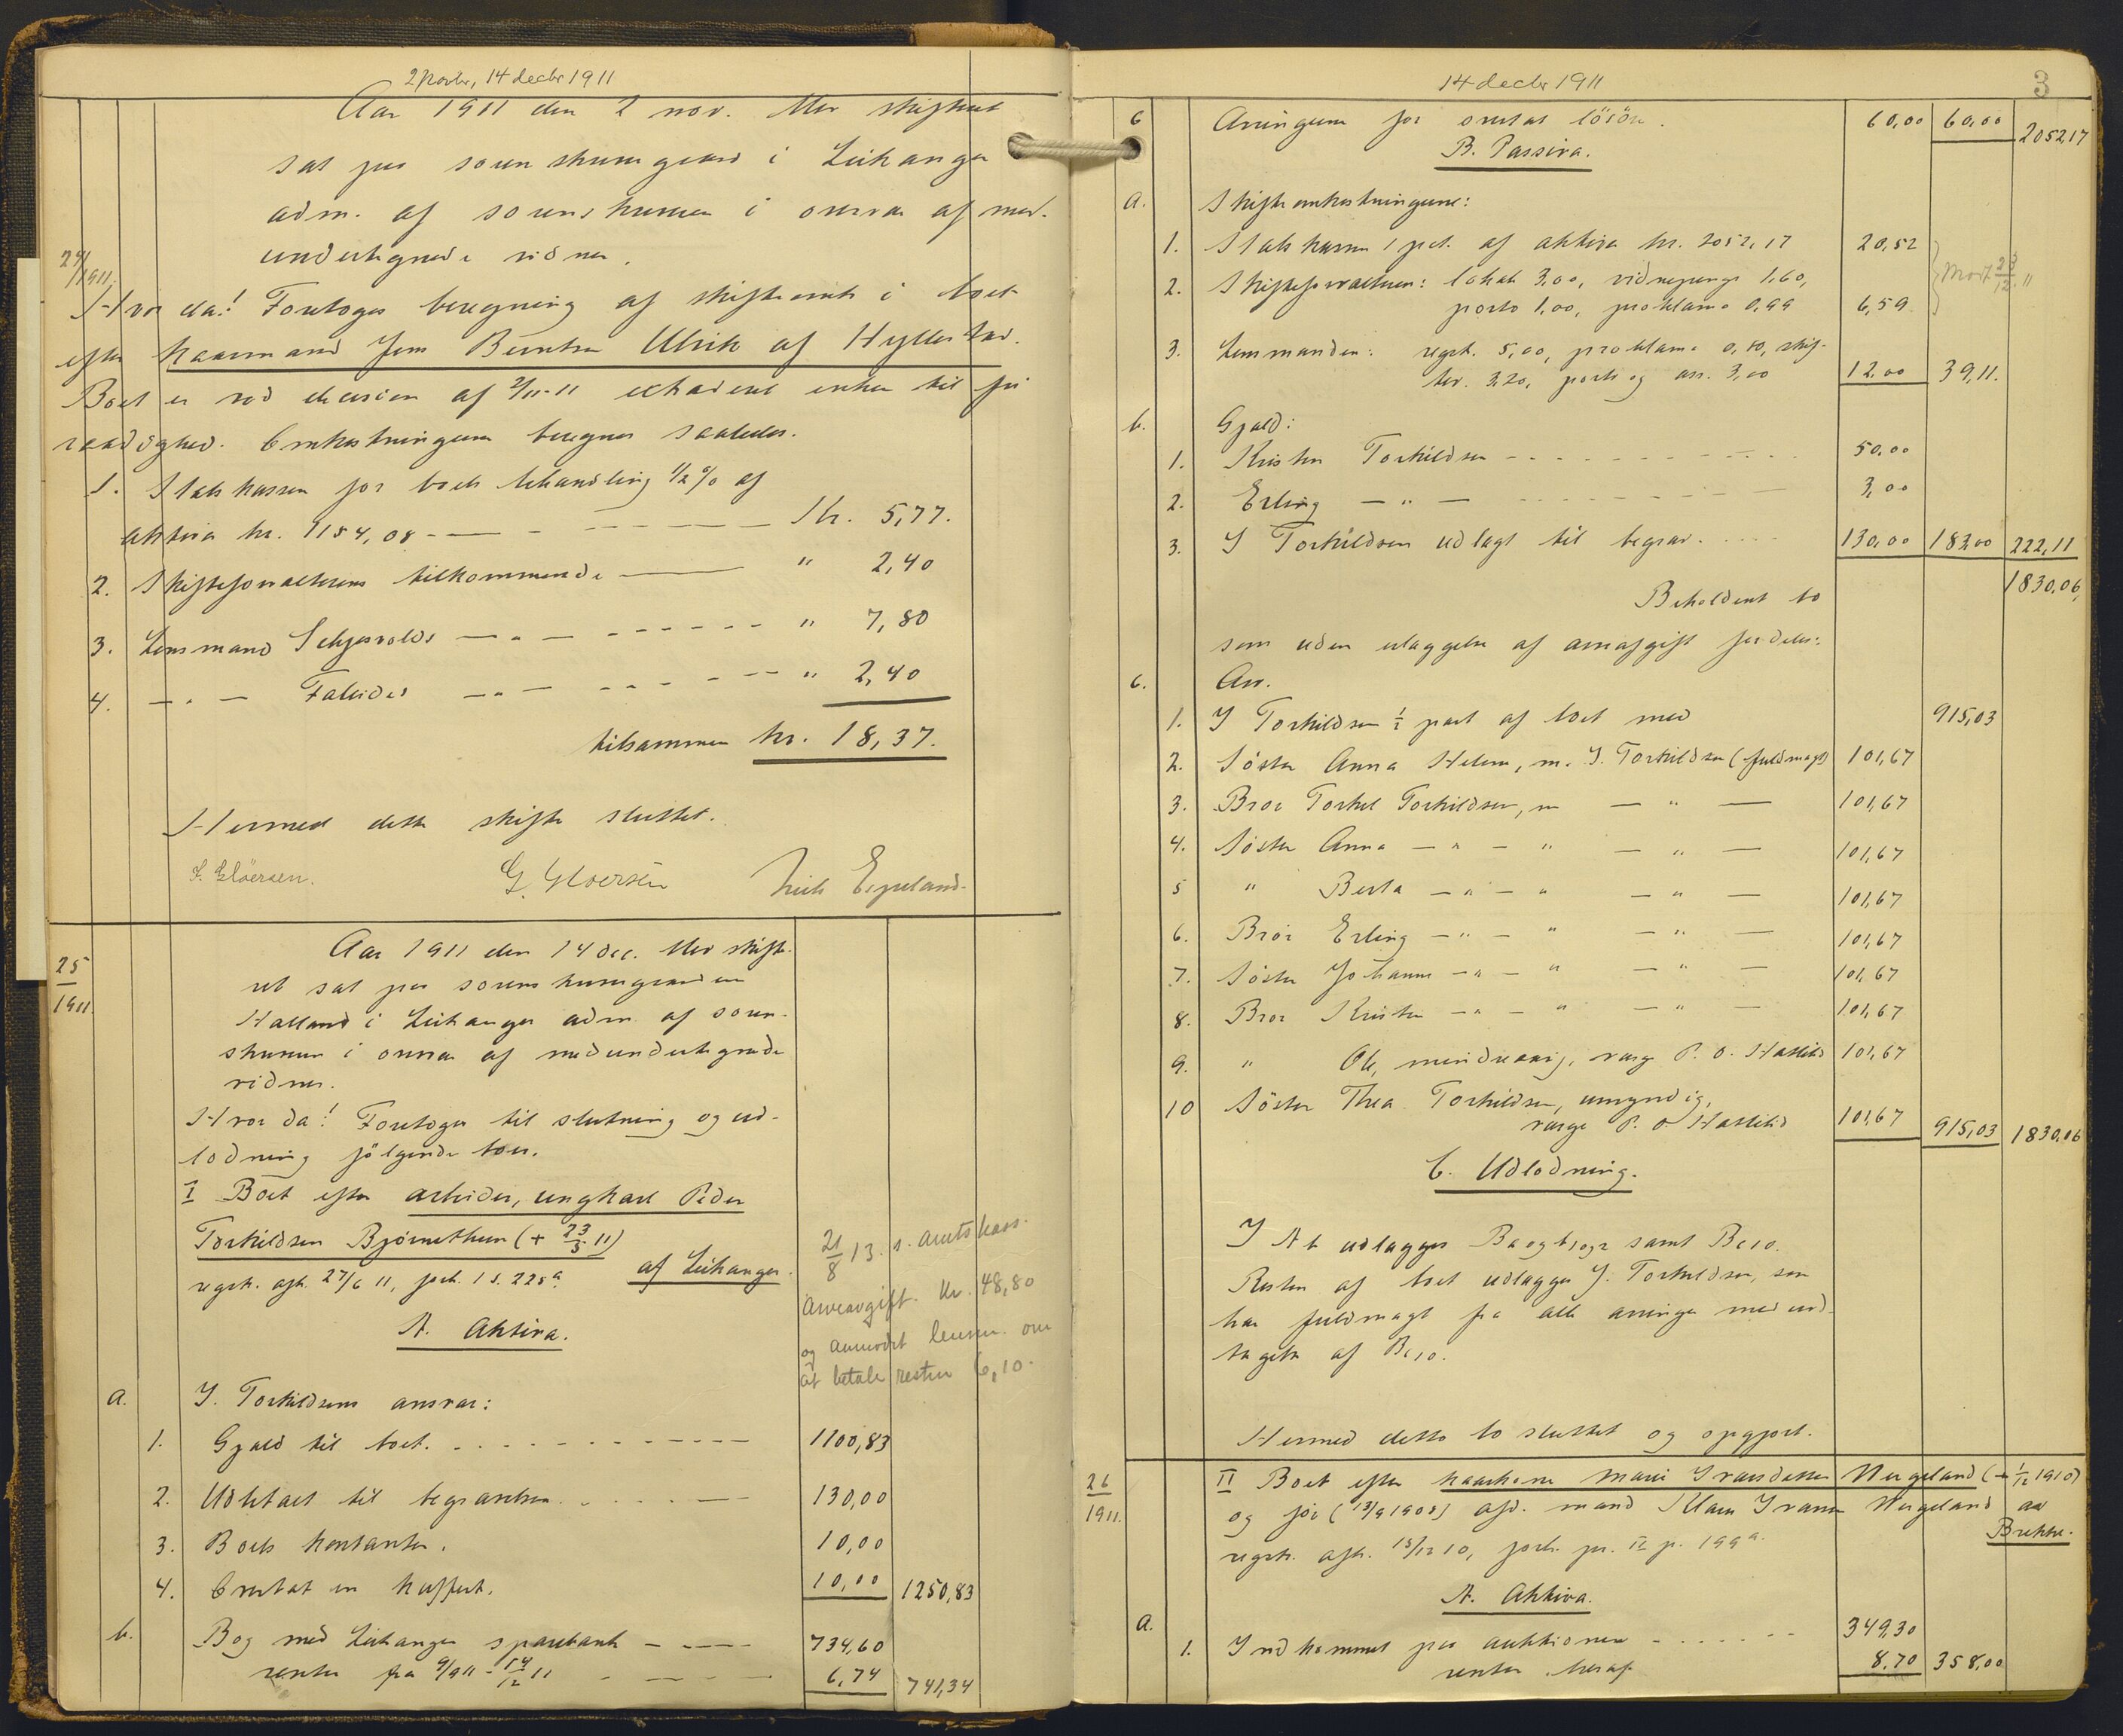 2 Novbr, 14 decbr 1911
Aar 1911 den 2 nov. blev skifteret
sat paa sorenskrivergaard i Leikanger
adm. af sorenskriveren i overvær af med-
undertegnede vidner.
24/1911.
Hvor da! Foretoges beregning af skifteomk. i boet
efter kaarmand Jens Berntsen Ulrik af Hyllestad.
Boet er ved decision af 2/11-11 extraderet enken til fri
raadighed. Omkostningerne beregnes saaledes.
1. Statskassen for boets behandling 1/2 % af
aktiva kr. 1154,08 - — - - - — Kr. 5,77.
2. Skifteforvalterens tilkommende — " 2,40
3. Lensmand Schjesvolds — " — - - - - - " 7,80
4. — " — Faleides — " — - - - - — " 2,40
tilsammen kr. 18,37.
Hermed dette skifte sluttet.
S. Gløersen. G. Gloersen Espeland.
25
1911.
Aar 1911 den 14 dec. blev skifte-
ret sat paa sorenskrivergaarden
Halland i Leikanger adm. af soren-
skriveren i overvær af medundertegnede
vidner.
Hvor da! Foretoges til slutning og ud-
lodning følgende boer.
I Boet efter arbeider, ungkarl Peder
Torkildsen Bjørnethun (+ 23/5 11)
af Leikanger.
regstr. afh. 27/6 11, prot. 1 s. 225a
21/8 13. s. amtskass.
arveavgift. kr. 48,80
og anmodet lensm. om
at betale resten 6,10.
A. Aktiva.
a. I. Torkildsens ansvar:
1. Gjæld til boet. - - - - - 1100,83
2. Udbetalt til begravelsen. - - - 130,00
3. Boets kontanter. 10,00
4. Overtat en kuffert. 10,00 1250,83
b. Bog med Leikanger sparebank - - — 734,60
renter fra 9/9 11 - 14/12 11 - — - 6,74 741,34
14 decbr 1911
3
c Arvingerne for overtat løsøre. 60,00 60,00 2052,17
B. Passiva.
a. Skifteomkostningerne:
1. Statskassen 1 pct. af aktiva kr. 2052,17 20,52
2. Skifteforvalteren: lokale 3,00, vidnepenge 1,60,
porto 1,00, proklama 0,99 6,59
Mod. 23/12 11
3. Lensmanden: regstr. 5,00, proklama 0,80, skif-
tev. 3,20, porto og ass. 3,00 12,00 39,11.
b. Gjæld:
1. Kristen Torkildsen - - - - - 50,00
2. Erling — " — - - - - - 3,00
3. I Torkildsen udlagt til begrav. - - - 130,00 183,00 222,11
Beholdent bo 1830,06,
som uden udlæggelse af arveafgift fordeles:
c. Arv.
1. I Torkildsen 1/2 part af boet med 915,03
2. Søster Anna Helene, m. I. Torkildsen (fuldmagt) 101,67
3. Bror Torkel Torkildsen, m — " — 101,67
4. Søster Anna — " — " — " — 101,67
5 " Berta — " — " — " — 101,67
6. Bror Erling — " — " — " — 101,67
7. Søster Johanne — " — " — " — 101,67
8. Bror Kristen — " — " — " — 101,67
9. " Ole, mindreaarig, værge P. O. Hatlelid 101,67
10 Søster Thea Torkildsen, umyndig,
værge P. O. Hatlelid 101,67 915,03 1830,06
C. Udlodning.
I A b udlægges Ba og b1 og 2 samt Bc10.
Resten af boet udlægges I. Torkildsen, som
har fuldmagt fra alle arvinger med und-
tagelse af Bc10.
Hermed dette bo sluttet og opgjort.
26
1911.
II Boet efter kaarkone Mari Ivarsdatter Nergeland (+ 1/12 1910)
og før (13/9 1908) afd. mand Klaus Ivarsen Nergeland av
Brekke.
regstr. afh. 15/12 10, prot. pr. II p. 199a.
A. Aktiva.
a. 1. Indkommet paa auktionen - - - - - 349,30
renter heraf 8,70 358,00